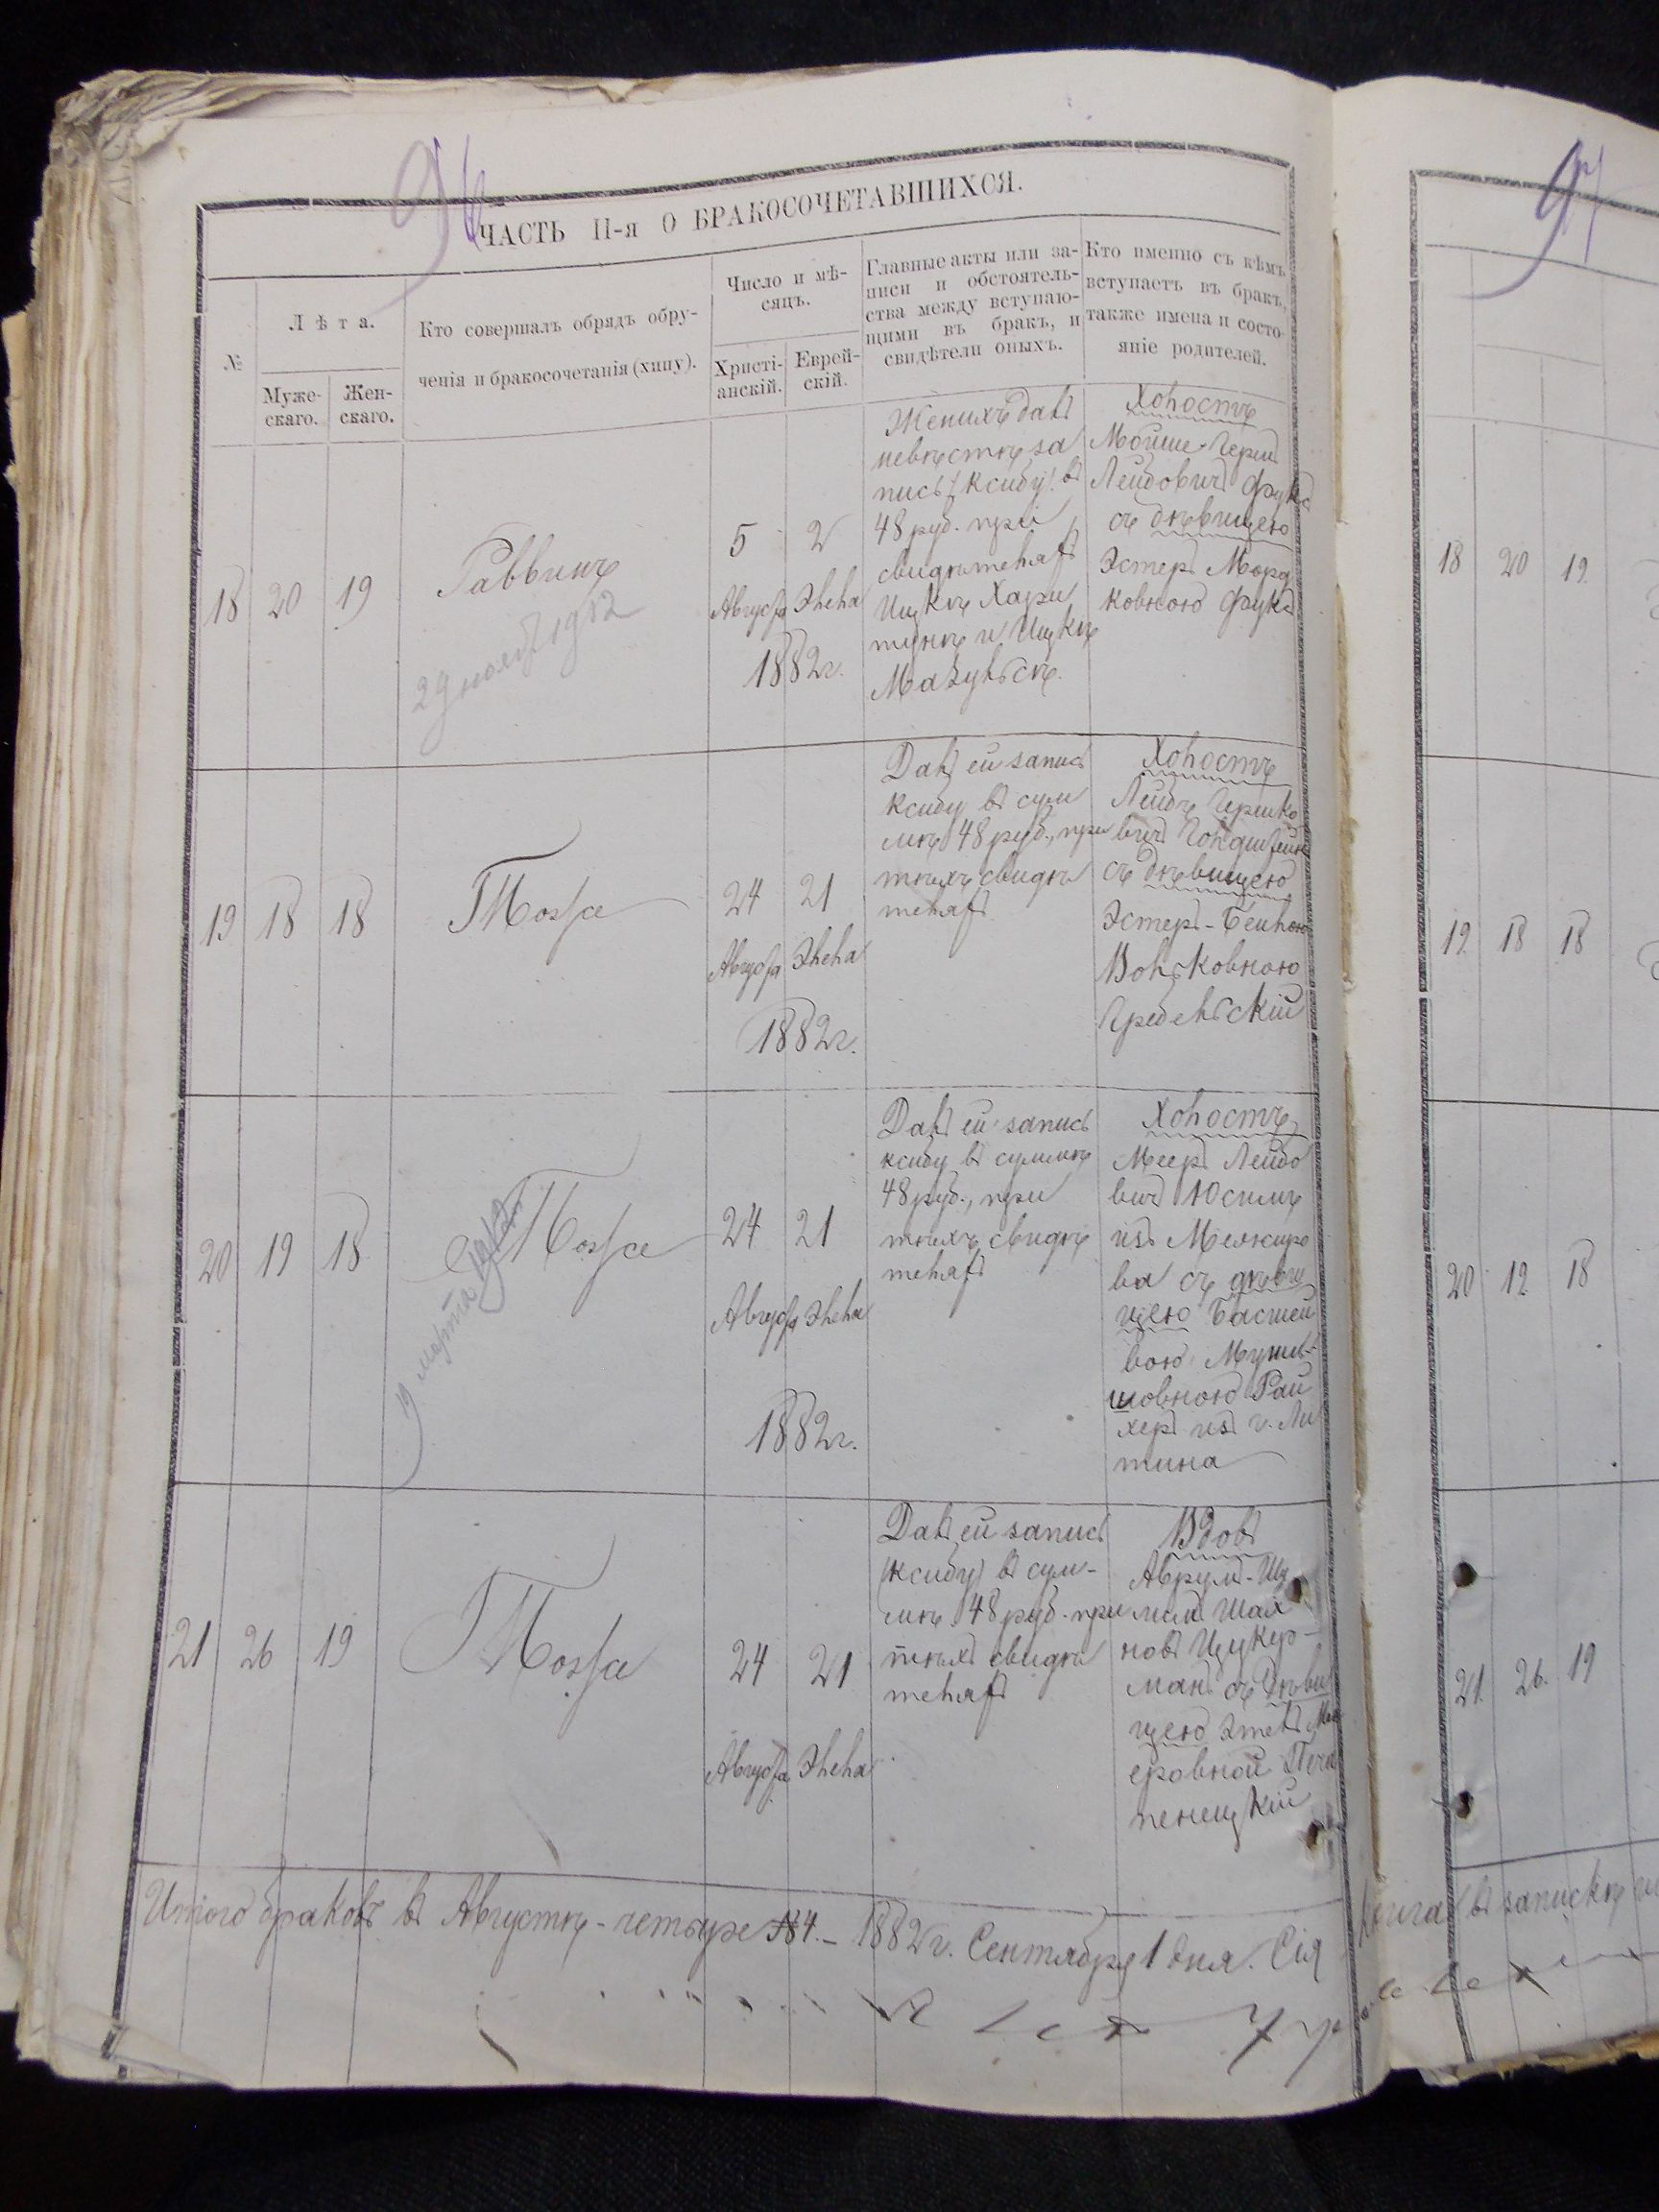 96
ЧАСТЬ II-я О БРАКОСОЧЕТАВШИХСЯ.
№
Лѣта.
Муже-
скаго.
Жен-
скаго.
Кто совершалъ обрядъ обру-
ченія и бракосочетанія (хипу).
Число и мѣ-
сяцъ.
Христі-
анскій.
Еврей-
скій.
Главные акты или за-
писи и обстоятель-
ства между вступаю-
щими въ бракъ, и
свидѣтели оныхъ.
Кто именно съ кѣмъ
вступаетъ въ бракъ,
также имена и состо-
яніе родителей.
18 20 19
Раввинъ
5 2
Августа Элела
1882 г.
Женихъ далъ
невѣстѣ за
пись (ксибу) въ
48 руб. при
свидѣтеляхъ
Ицкѣ Хари
тунѣ и Ицкѣ
Холостъ
Мойше-Герш
Лейбовичъ Фуксъ
съ дѣвицею
ЭстеръМорд
ковною Фуксъ
19 18 18
Тоже
24 21
Августа Элела
1882 г.
Далъ ей запись
ксибу въ сум
мѣ 48 руб., при
тѣхъ свидѣ
теляхъ
Холостъ
Лейбъ Гершко
вичъ
съ дѣвицею
Эстеръ-Бейлою
Вольковною
Гребельскій
20 19 18
Тоже
24 21
Августа Элела
1882 г.
Далъ ей запись
ксибу въ суммѣ
48 руб., при
тѣхъ свидѣ
теляхъ
Холостъ
Мееръ Лейбо
вичъ Юсимъ
изъ Межиро
ва съ дѣви
цею Басшей
вою
шовною Рай
херъ изъ г. Ли
тина
21 26 19
Тоже
24 21
Августа Элела
Далъ ей запись
(ксибу) въ сум-
мѣ 48 руб. при
тѣхъ свидѣ
теляхъ
Вдовъ
Аврумъ-Шу
лимъ Шах
новъ Цукер-
манъ съ дѣви
цею Этель Ме
еровной Печи
пенецкій
Итого браковъ въ Августѣ - четыре №4. - 1882 г. Сентября 1 дня. Сія
97
18 20 19.
19. 18 18
20 19. 18
21. 26. 19
Книга въ запискѣ